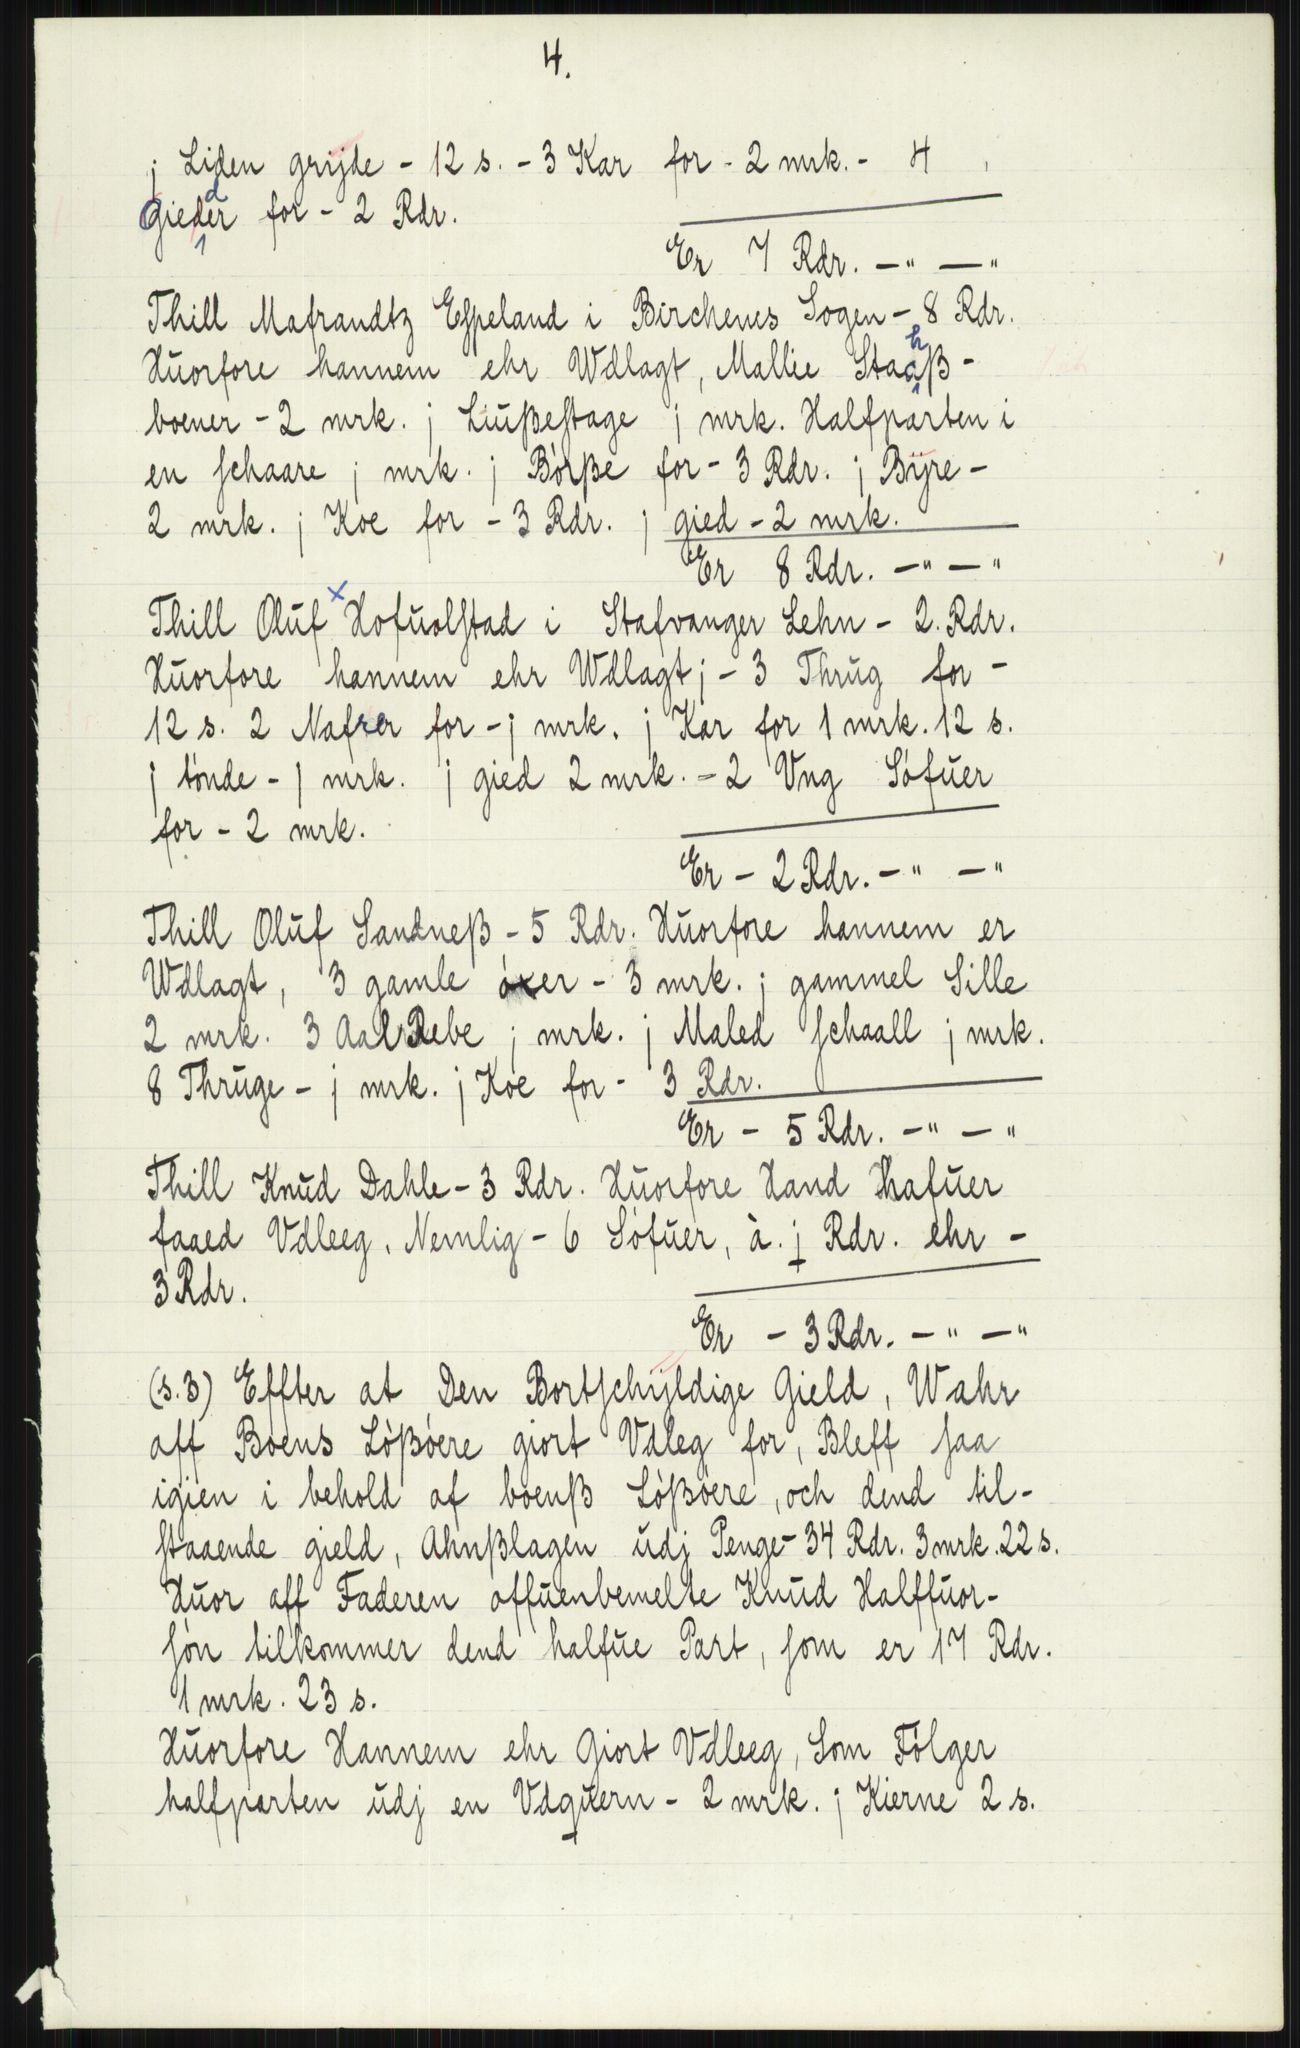 4.
j Liden grijde - 12 s. - 3 Kar for - 2 mrk. - 4
Giedder for - 2 Rdr.
Er 7 Rdr. - " - "
Thill Mafrandtz Espeland i Birchenes Sogen - 8 Rdr.
Huorfore hannem ehr Wdlagt, Mallie Stahß-
boener - 2 mrk. j Liußestage j mrk. Halfparten i
en schaare j mrk. j Börße for - 3 Rdr. j Bijre -
2 mrk. j Koe for - 3 Rdr. j gied - 2 mrk.
Er 8 Rdr. - " - "
Thill Oluf x Hofuolstad i Stafvanger Lehn - 2. Rdr.
Huorfore hannem ehr Wdlagt; - 3 Thrug for -
12 s. 2 Nafrer for - j mrk. j Kar for 1 mrk. 12 s.
j tönde - j mrk. j gied 2 mrk. - 2 Vng Söfuer
for - 2 mrk.
Er - 2 Rdr. - " - "
Thill Oluf Sandneß - 5 Rdr. Huorfore hannem er
Wdlagt, 3 gamle öxer - 3 mrk. j gammel Sille
2 mrk. 3 Aal Rebe j mrk. j Maled schaall j mrk.
8 Thruge - j mrk. j Koe for - 3 Rdr.
Er - 5 Rdr. - " - "
Thill Knud Dahle - 3 Rdr. Huorfore Hand Hafuer
faaed Vdleeg, Nemlig - 6 Söfuer, à. j Rdr. ehr -
3 Rdr.
Er - 3 Rdr. - " - "
(s.3) Effter at Den Bortschijldige Gield, Wahr
aff Boens Lößöere giort Vdleg for, Bleff saa
igien i behold af boenß Lößöere, och dend til-
staaende gield, Ahnßlagen udj Penge - 34 Rdr. 3 mrk. 22 s.
Huor aff Faderen offuenbemelte Knud Halffuor-
sön tilkommer dend halfue Part, som er 17 Rdr.
1 mrk. 23 s.
Huorfore Hannem ehr Giort Vdleeg, Som Fölger
halfparten udj en Vdquern - 2 mrk. j Kierne 2 s.